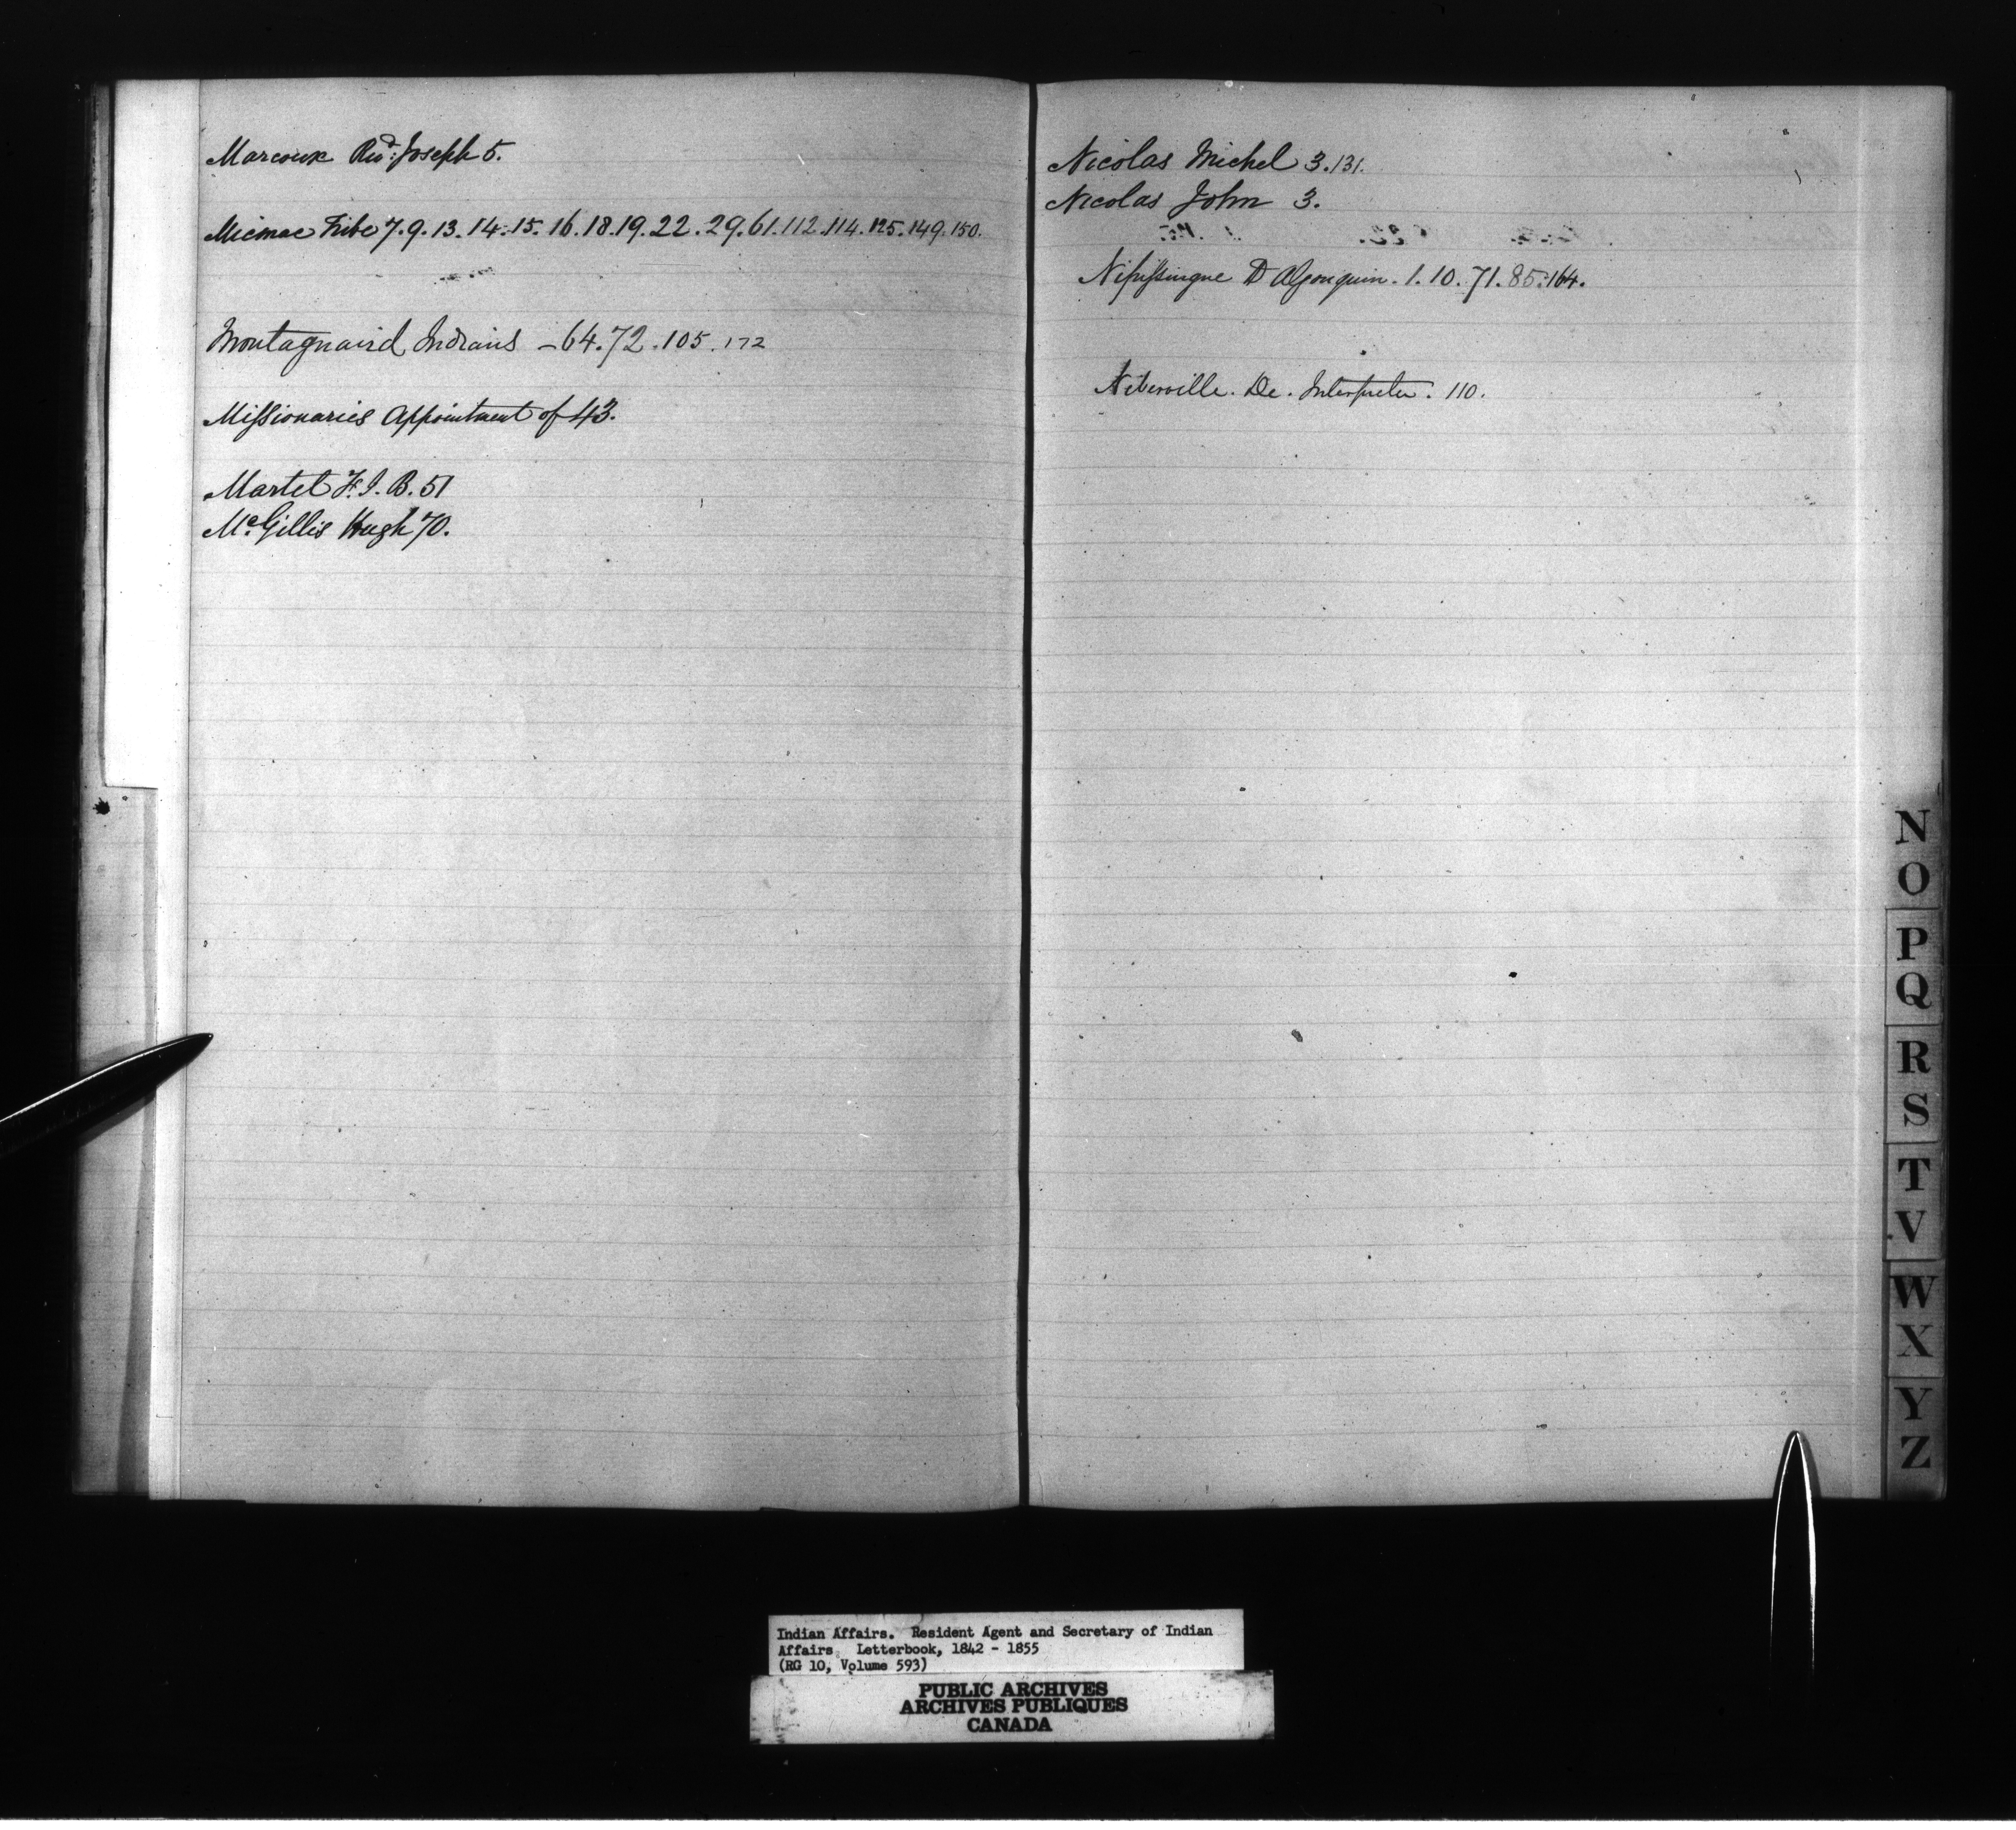 Marcoux Revd: Joseph 5.
Micmac Tribe 7.9.13.14.15.16.18.19.22.29.61.112.114.125.149.150.
Montagnaird Indians - 64.72.105.172
Missionaries Appointment of 43.
Martel F. I. B. 51
Mc.Gillis Hugh 70.
Nicolas Michel 3.131.
Nicolas John 3.
Nipissingue D Algonquin. 1.10.71.85.164.
De. Interpreter. 110.
N
O
P
Q
R
S
T
V
W
X
Y
Z
Indian Affairs. Resident Agent and Secretary of Indian
Affairs Letterbook, 1842 - 1855
(RG 10, Volume 593)
PUBLIC ARCHIVES
ARCHIVES PUBLIQUES
CANADA